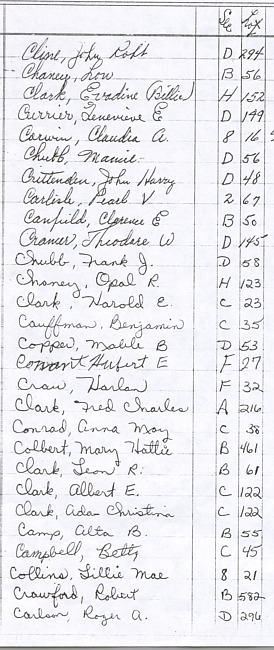 Sec Lot
Cline, John Robt D 294
Chaney, Lou B 56
Clark, Evadine (Billie) H 152
Currier, Genevieve E D 149
Carwin, Claudia A. 8 16
Chubb, Mamie D 56
Crittenden, John Harry D 48
Carlisle, Pearl V 2 67
Canfield, Clarence E B 50
Cramer, Theodore W D 145
Chubb, Frank J. D 58
Chaney, Opal R. H 123
Clark, Harold E. C 23
Cauffman, Benjamin C 35
Copper, Mable B D 53
Conant Hubert E F 27
Craw, Harlan F 32
Clark, Fred Charles A 216
Conrad, Anna May C 38
Colbert, Mary Hattie B 461
Clark, Leon R. B 61
Clark, Albert E. C 122
Clark, Ada Christina C 122
Camp, Alta B. B 55
Campbell, Betty C 45
Collins, Lillie Mae 8 21
Crawford, Robert B 582
Carlson, Roger A. D 296